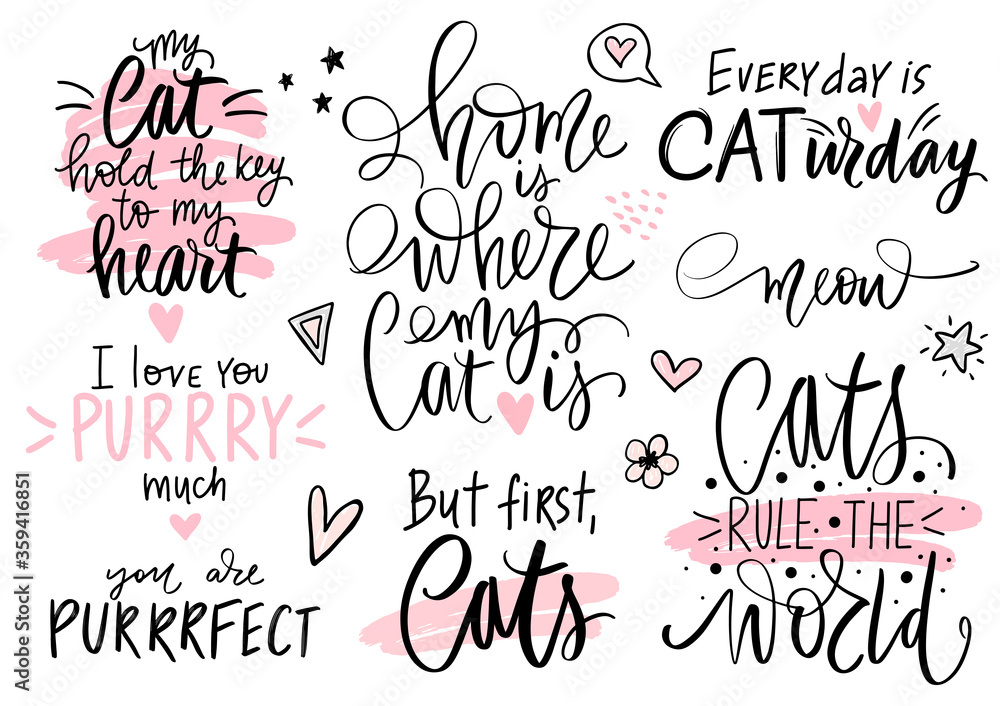 my
Cat
hold the key
to my
heart
I love you
PURRRY
much
you are
PURRRFECT
home
is
where
my
Cat is
But first,
Cats
EVERY day is
CATurday
meow
Cats
RULE THE
World
Adobe Stock | #359416851